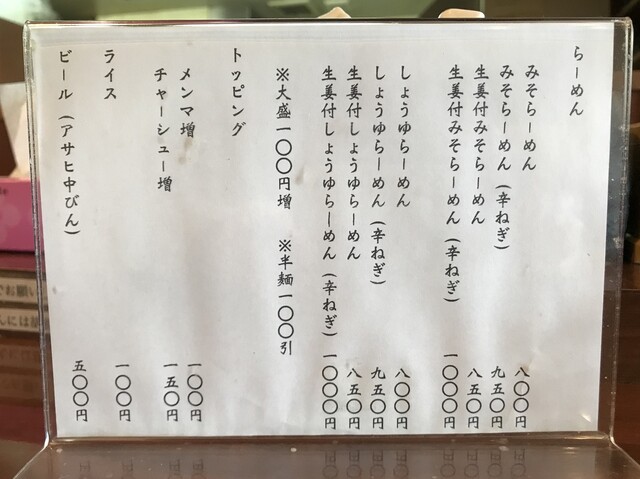 らーめん
みそらーめん 八〇〇円
みそらーめん(辛ねぎ) 九五〇円
生姜付みそらーめん 八五〇円
生姜付みそらーめん(辛ねぎ) 一〇〇〇円
しょうゆらーめん 八〇〇円
しょうゆらーめん(辛ねぎ) 九五〇円
生姜付しょうゆらーめん 八五〇円
生姜付しょうゆらーめん(辛ねぎ) 一〇〇〇円
※大盛一〇〇円増 ※半麺一〇〇引
トッピング
メンマ増 一〇〇円
チャーシュー増 一五〇円
ライス 一〇〇円
ビール(アサヒ中びん) 五〇〇円
でお願い
んには